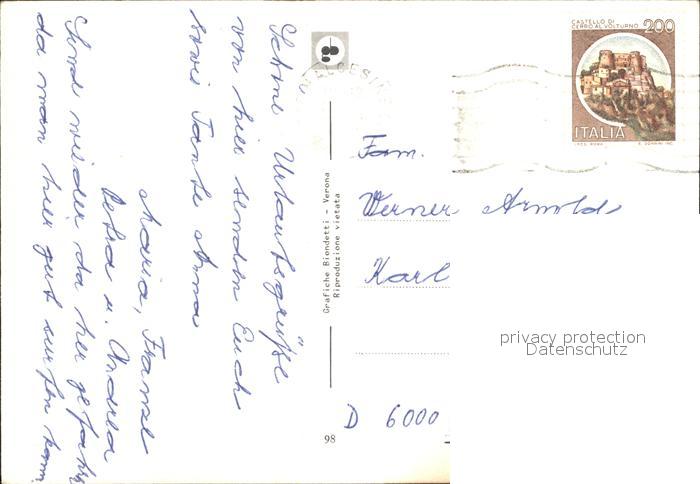 Schöne Urlaubsgrüße
von hier senden Euch
sowie Tante Anna
Maria, Franzl
Petra u. Andrea
Sind wieder da her gefahr
da man hier gut surfen kann
Grafiche Biondetti - Verona
Riproduzione vietata
98
CASTELLO DI
CERRO AL VOLTURNO 200
ITALIA
I.P.Z.S. ROMA E. DONNINI INC.
Fam.
Werner Arnolds
Karl
privacy protection
Datenschutz
D 6000